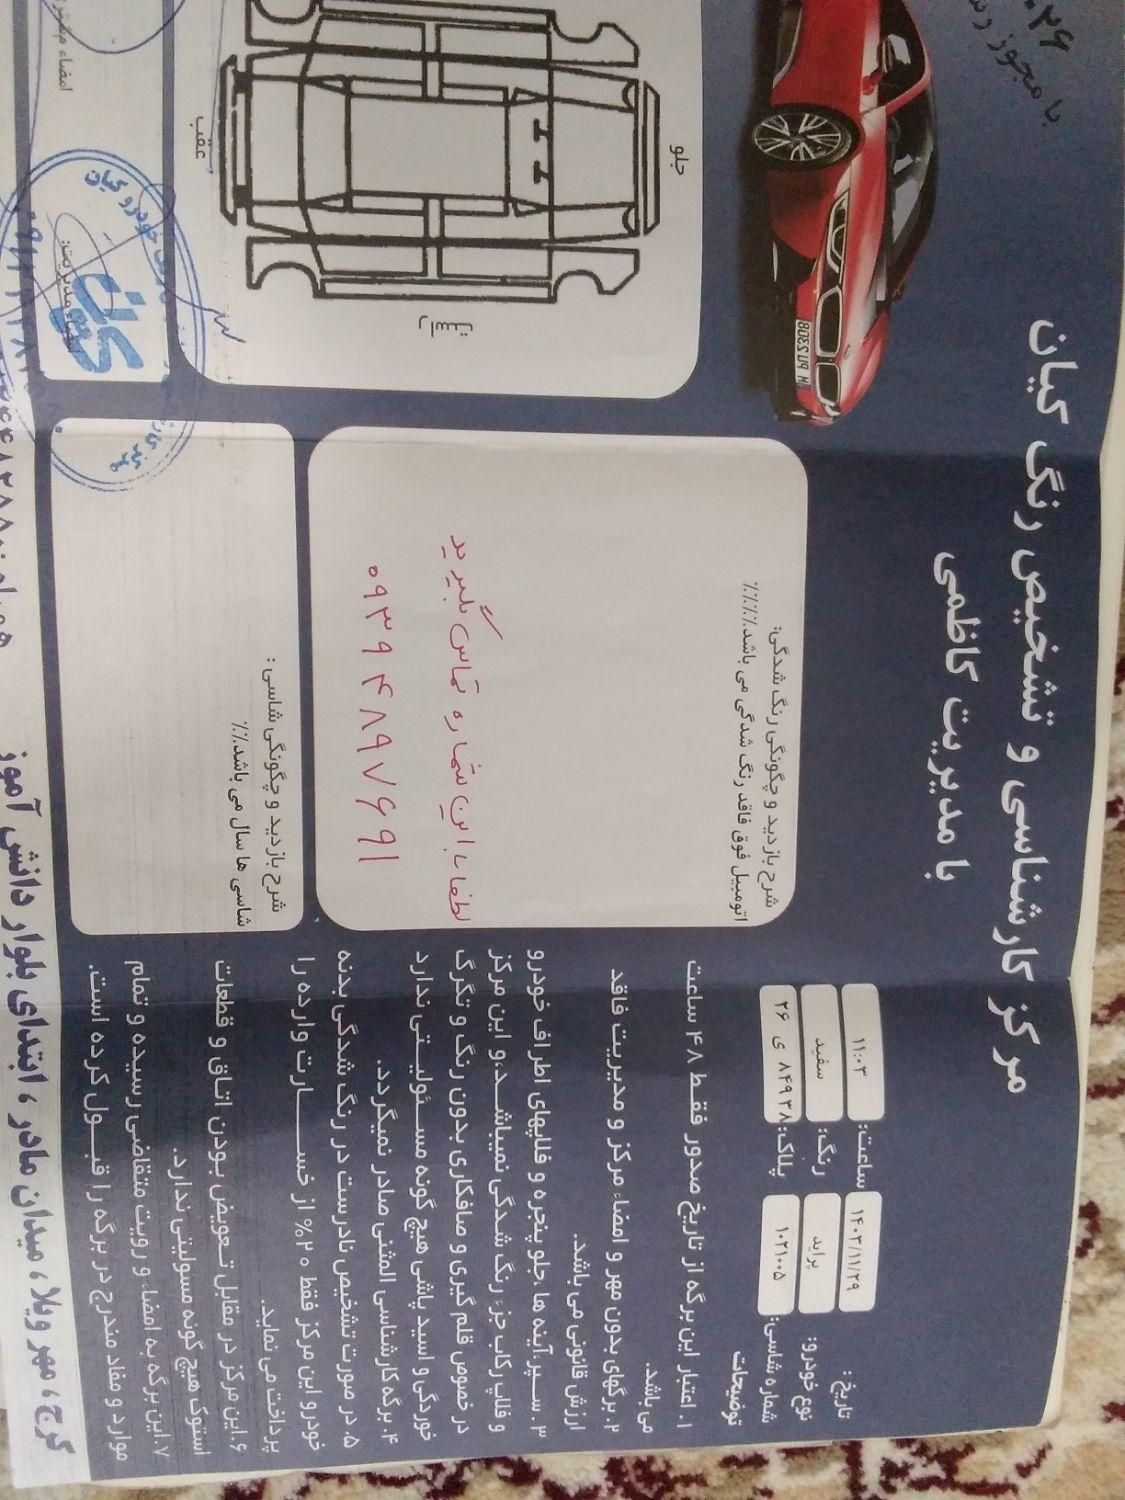 مرکز کارشناسی و تشخیص رنگ کیان
با مدیریت کاظمی
۲۶
با مجوز
تاریخ: ۱۴۰۳/۱۱/۲۹ ساعت: ۱۱:۰۳
نوع خودرو: پراید رنگ: سفید
شماره شاسی: ۱۰۲۱۰۰۵ پلاک: ۸۴۹۳۸ ی ۲۶
توضیحات
۱. اعتبار این برگه از تاریخ صدور فقط ۴۸ ساعت
می باشد.
۲. برگهای بدون مهر و امضاء مرکز و مدیریت فاقد
ارزش قانونی می باشد.
۳. سپر، آینه ها، جلو پنجره و فلاپهای اطراف خودرو
و فلاپ رکاب جزء رنگ شدگی نمیباشد، و این مرکز
در خصوص قلم گیری و صافکاری بدون رنگ و تگرگ
خوردگی و اسید پاشی هیچ گونه مسئولیتی ندارد
۴. برگه کارشناسی المثنی صادر نمیگردد.
۵. در صورت تشخیص نادرست در رنگ شدگی بدنه
خودرو این مرکز فقط ۲۰% از خسارت وارده را
پرداخت می نماید.
۶. این مرکز در مقابل تعویض بودن اتاق و قطعات
استوک هیچ گونه مسولیتی ندارد.
۷. این برگه به امضاء و رویت متقاضی رسیده و تمام
موارد و مفاد مندرج در برگه را قبول کرده است.
شرح بازدید و چگونگی رنگ شدگی:
اتومبیل فوق فاقد رنگ شدگی می باشد.٪٪٪٪
لطفا با این شماره تماس بگیرید
۰۹۳۹ ۴۸۹۷۶۹۱
شرح بازدید و چگونگی شاسی :
شاسی ها سال می باشد.٪٪
جلو
عقب
راست
امضاء مشتری
مدیریت:
کیان
کرج، مهر ویلا، میدان مادر، ابتدای بلوار دانش آموز